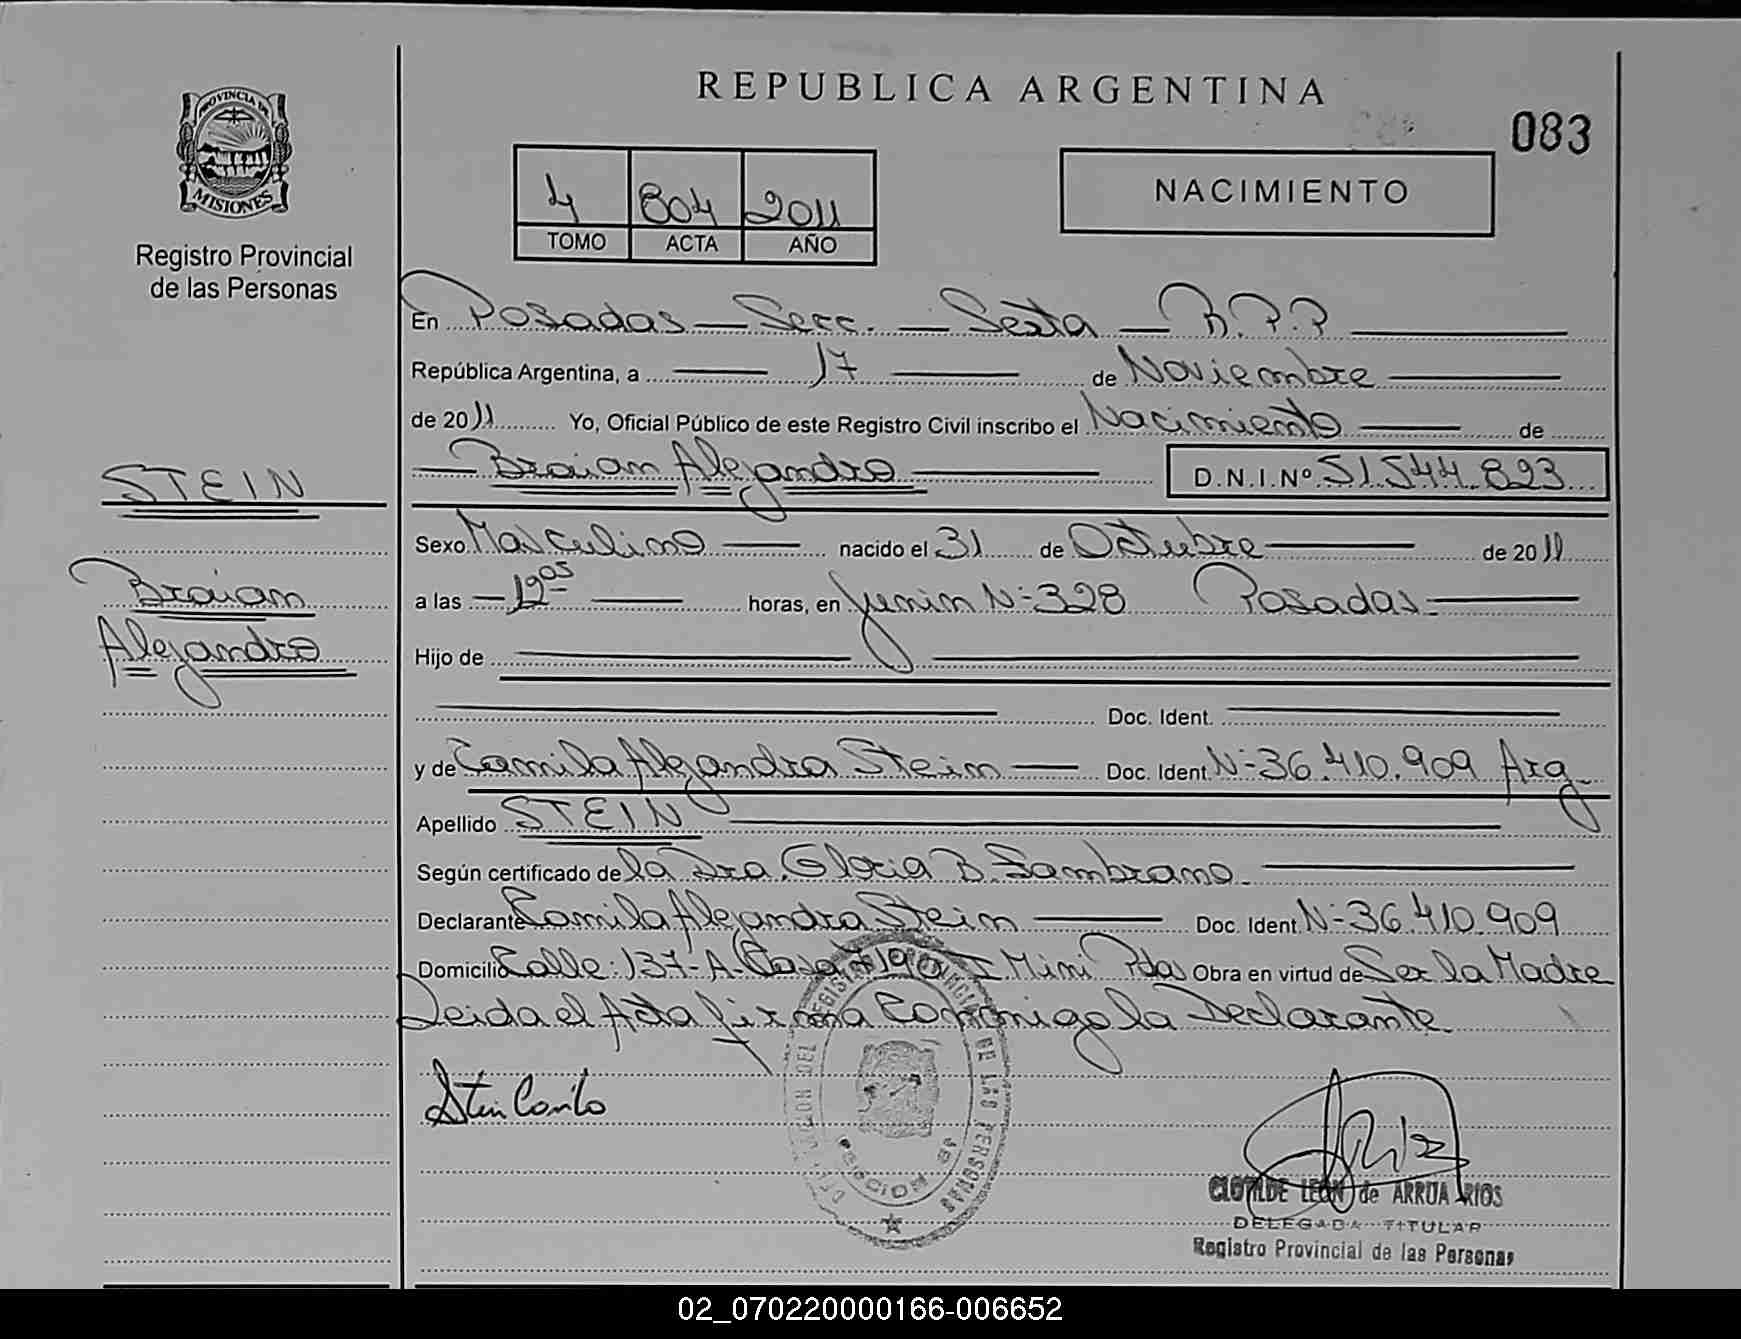 REPUBLICA ARGENTINA
083
PROVINCIA DE
MISIONES
Registro Provincial
de las Personas
4 804 2011
TOMO ACTA AÑO
NACIMIENTO
En Posadas — Secc. — Sexta — R.P.P
República Argentina, a — 17 — de Noviembre
de 2011 Yo, Oficial Público de este Registro Civil inscribo el Nacimiento — de
— Braian Alejandro — D.N.I.Nº 51.544.823
STEIN
Braian
Alejandro
Sexo Masculino — nacido el 31 de Octubre — de 2011
a las — 12 05 — horas, en Junin Nº 328 Posadas
Hijo de
Doc. Ident.
y de Camila Alejandra Stein — Doc. Ident. Nº 36.410.909 Arg
Apellido STEIN
Según certificado de la Dra. Gloria B. Zambrano
Declarante Camila Alejandra Stein — Doc. Ident. Nº 36.410.909
Domicilio Calle: 137-A- Casa I Mini Pdas Obra en virtud de Ser la Madre
Leida el Acta firma Conmigo la Declarante
Stein Camila
REGISTRO PROVINCIAL DE LAS PERSONAS
CLOTILDE LEON de ARRUA RIOS
DELEGADA TITULAR
Registro Provincial de las Personas
02_070220000166-006652